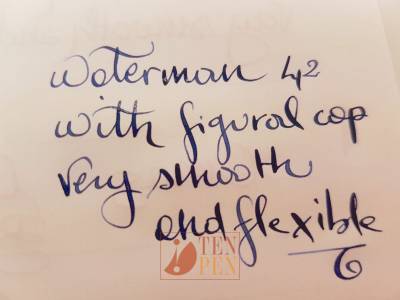 Waterman 42
with figural cap
very smooth
and flexible
TEN
PEN